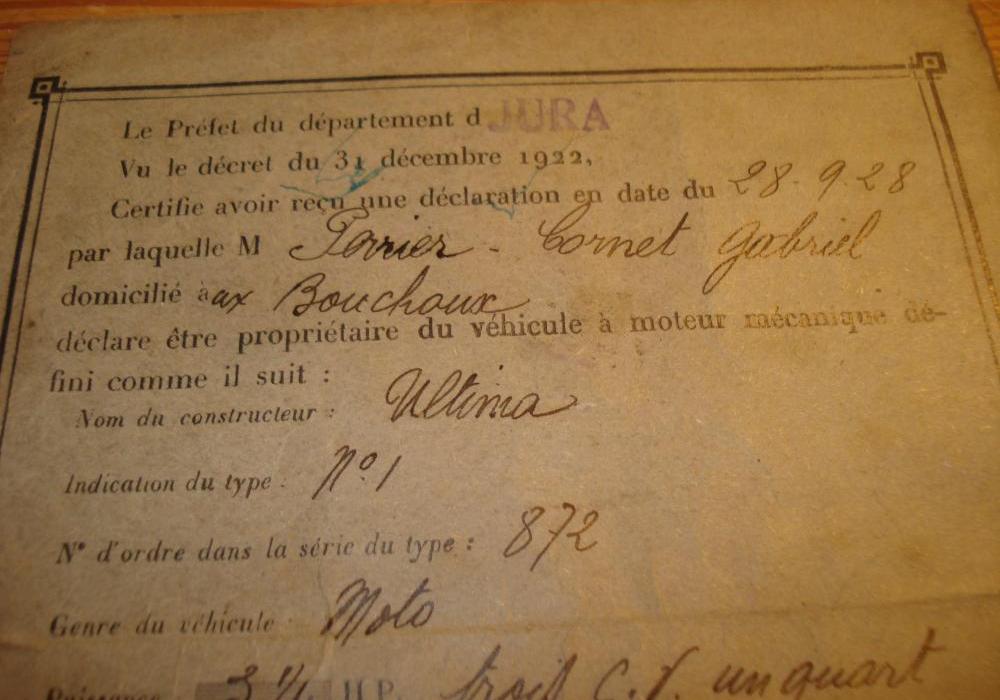 Le Préfet du département d JURA
Vu le décret du 31 décembre 1922,
Certifie avoir reçu une déclaration en date du 28.9.28
par laquelle M Perrier - Cornet Gabriel
domicilié à ax Bouchoux
déclare être propriétaire du véhicule à moteur mécanique dé-
fini comme il suit :
Nom du constructeur : Ultima
Indication du type : N° 1
N° d'ordre dans la série du type : 872
Genre du véhicule : Moto
Puissance 3 1/4 HP. troit C.V. un quart